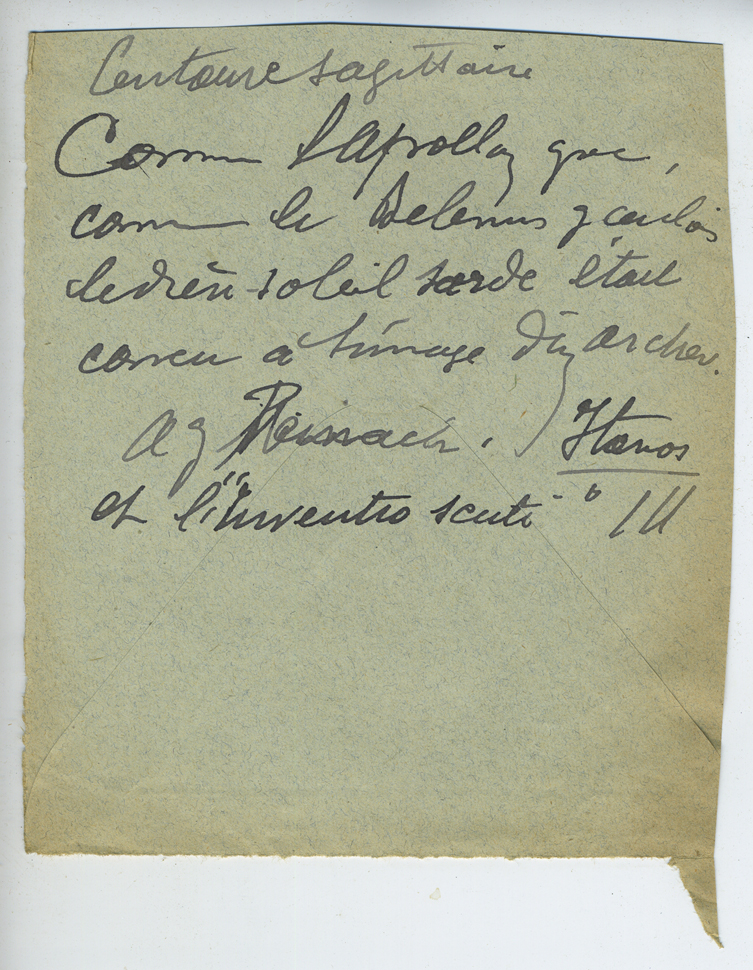 Centaure sagittaire
Comme l'Apollon grec,
comme le Belenus gaulois
le dieu-soleil sarde était
concu à l'image d'un archer.
A J Reinach. Itanos
et l'"Inventio scuti" III